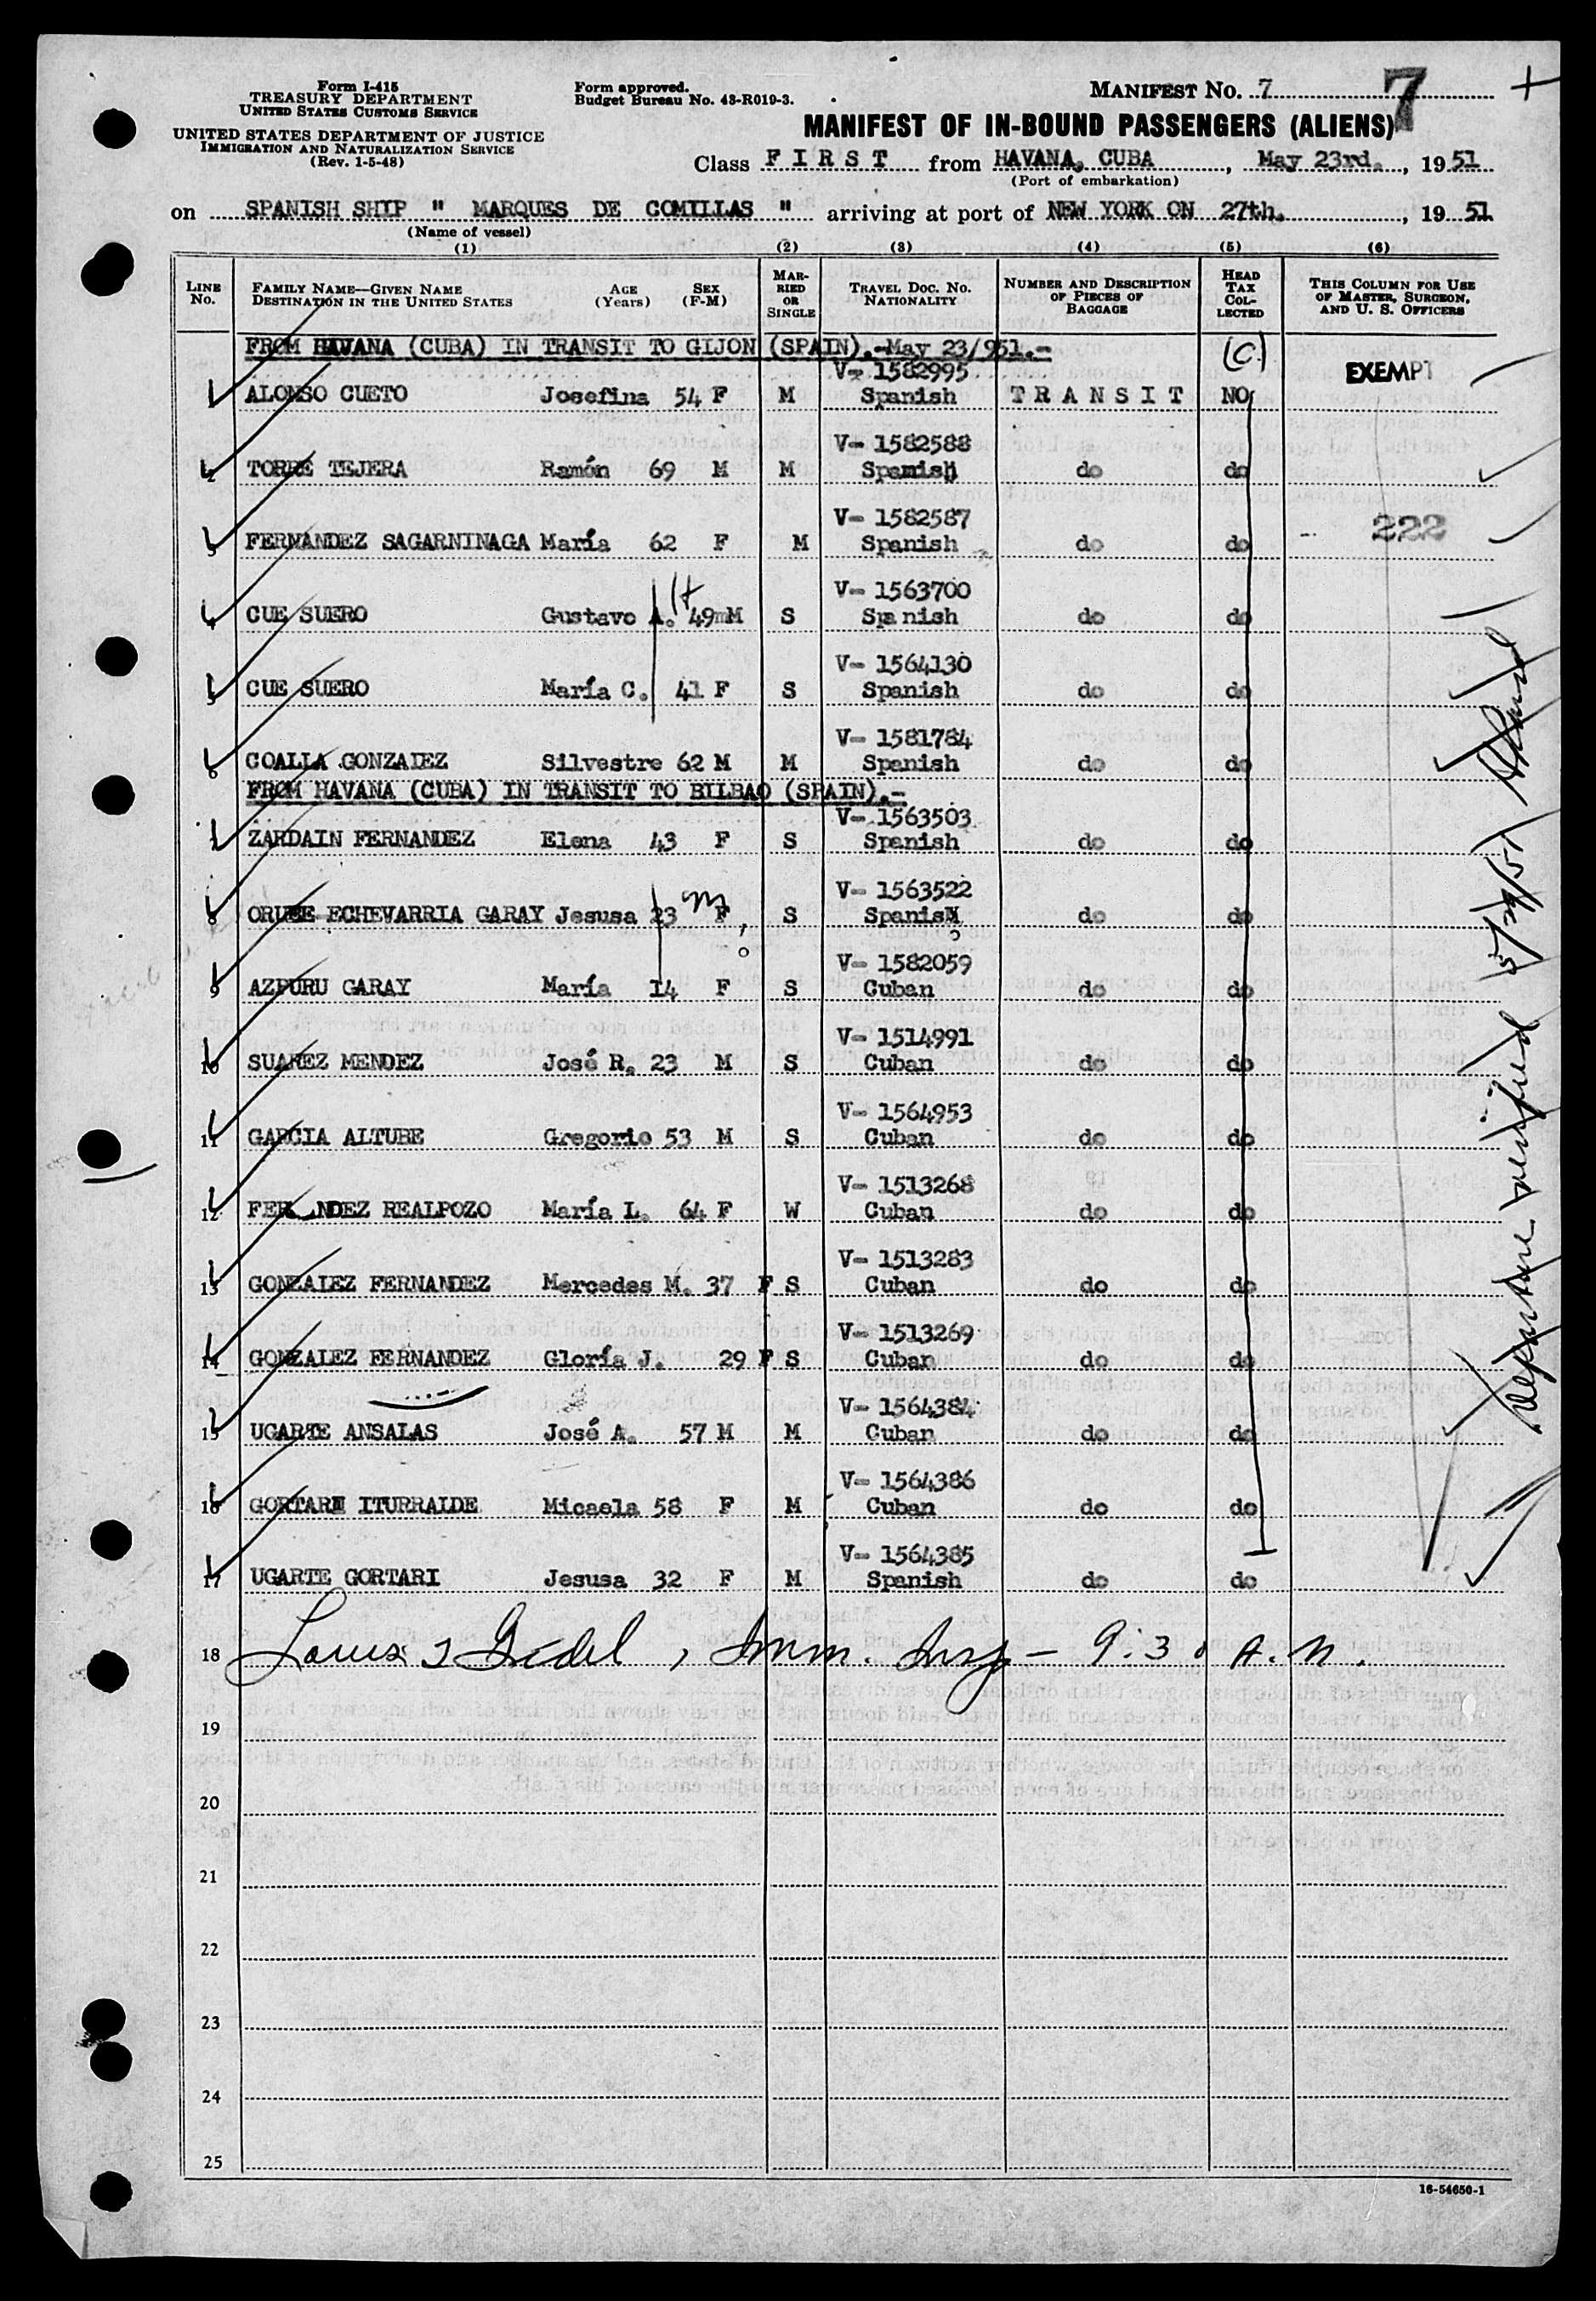 Form I-415
TREASURY DEPARTMENT
UNITED STATES CUSTOMS SERVICE
UNITED STATES DEPARTMENT OF JUSTICE
IMMIGRATION AND NATURALIZATION SERVICE
(Rev. 1-5-48)
Form approved.
Budget Bureau No. 43-R019-3.
MANIFEST NO. 7
7
MANIFEST OF IN-BOUND PASSENGERS (ALIENS)
Class F I R S T from HAVANA, CUBA, May 23rd., 1951
(Port of embarkation)
on SPANISH SHIP " MARQUES DE COMILLAS " arriving at port of NEW YORK ON 27th., 1951
(Name of vessel)
(1) (2) (3) (4) (5) (6)
LINE No. FAMILY NAME—GIVEN NAME DESTINATION IN THE UNITED STATES AGE (Years) SEX (F-M) MARRIED OR SINGLE TRAVEL DOC. NO. NATIONALITY NUMBER AND DESCRIPTION OF PIECES OF BAGGAGE HEAD TAX COLLECTED THIS COLUMN FOR USE OF MASTER, SURGEON, AND U. S. OFFICERS
FROM HAVANA (CUBA) IN TRANSIT TO GIJON (SPAIN).-May 23/951.-
(C)
EXEMPT
V- 1582995
1 ALONSO CUETO Josefina 54 F M Spanish T R A N S I T NO
V- 1582588
2 TORRE TEJERA Ramón 69 M M Spanish do do
V- 1582587
222
3 FERNANDEZ SAGARNINAGA María 62 F M Spanish do do
V- 1563700
4 CUE SUERO Gustavo A. 49 M S Spanish do do
V- 1564130
5 CUE SUERO María C. 41 F S Spanish do do
V- 1581784
6 COALLA GONZALEZ Silvestre 62 M M Spanish do do
FROM HAVANA (CUBA) IN TRANSIT TO BILBAO (SPAIN).-
V- 1563503
7 ZARDAIN FERNANDEZ Elena 43 F S Spanish do do
V- 1563522
8 ECHEVARRIA GARAY Jesusa 23 F m S Spanish do do
V- 1582059
9 AZPURU GARAY María 14 F S Cuban do do
V- 1514991
10 SUAREZ MENDEZ José R. 23 M S Cuban do do
V- 1564953
11 GARCIA ALTUBE Gregorio 53 M S Cuban do do
V- 1513268
12 FERNANDEZ REALPOZO María L. 64 F W Cuban do do
V- 1513283
13 GONZALEZ FERNANDEZ Mercedes M. 37 F S Cuban do do
V- 1513269
14 GONZALEZ FERNANDEZ Gloría J. 29 F S Cuban do do
V- 1564384
15 UGARTE ANSALAS José A. 57 M M Cuban do do
V- 1564386
16 GORTARI ITURRALDE Micaela 58 F M Cuban do do
V- 1564385
17 UGARTE GORTARI Jesusa 32 F M Spanish do do
18 Imm. Insp - 9:30 A.M.
19
20
21
22
23
24
25
16-54650-1
Departure verified 5/29/51